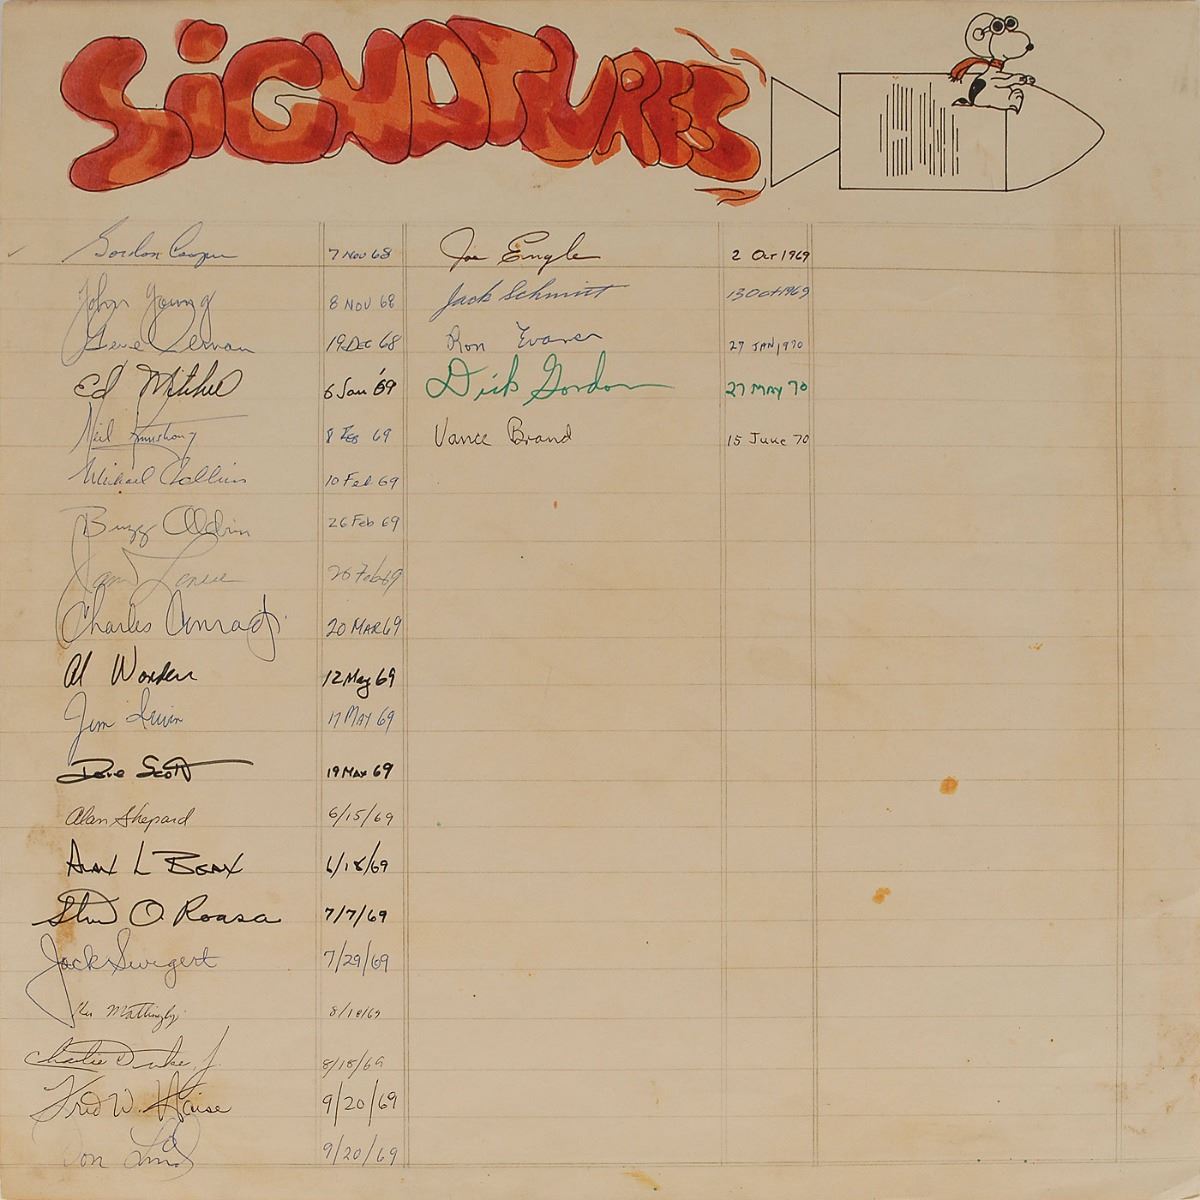 SiGNATURES
Gordon Cooper 7 Nov 68
John Young 8 Nov 68
Gene Cernan 19 Dec 68
Ed Mitchell 6 Jan '69
Neil Armstrong 8 Feb 69
Michael Collins 10 Feb 69
Buzz Aldrin 26 Feb 69
James Lovell 26 Feb 69
Charles Conrad Jr. 20 MAR 69
Al Worden 12 May 69
Jim Irwin 17 MAY 69
Dave Scott 19 MAY 69
Alan Shepard 6/15/69
Alan L Bean 6/18/69
Stu O. Roosa 7/7/69
Jack Swigert 7/29/69
Ken Mattingly 8/18/69
Charlie Duke Jr. 8/18/69
Fred W. Haise 9/20/69
Don Lind 9/20/69
Joe Engle 2 Oct 1969
Jack Schmitt 13 Oct 1969
Ron Evans 27 JAN, 1970
Dick Gordon 27 MAY 70
Vance Brand 15 June 70